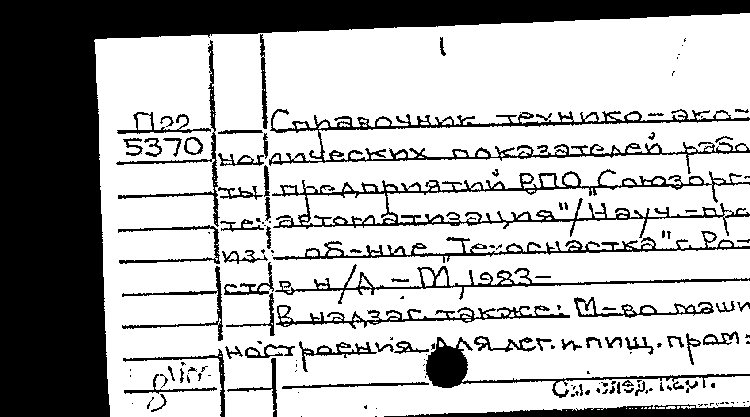 Справочник технико-эко-
П22
5370
номических показателей рабо
ты предприятий ВПО „Союзорг-
тех автоматизация"/Науч.-про
из об-ние „Техоснастка" г. Ро-
стов н/Д. - М., 1983-
В надзаг. также: М-во маши
ностроения для лег. и пищ. пром-
См. след. карт.